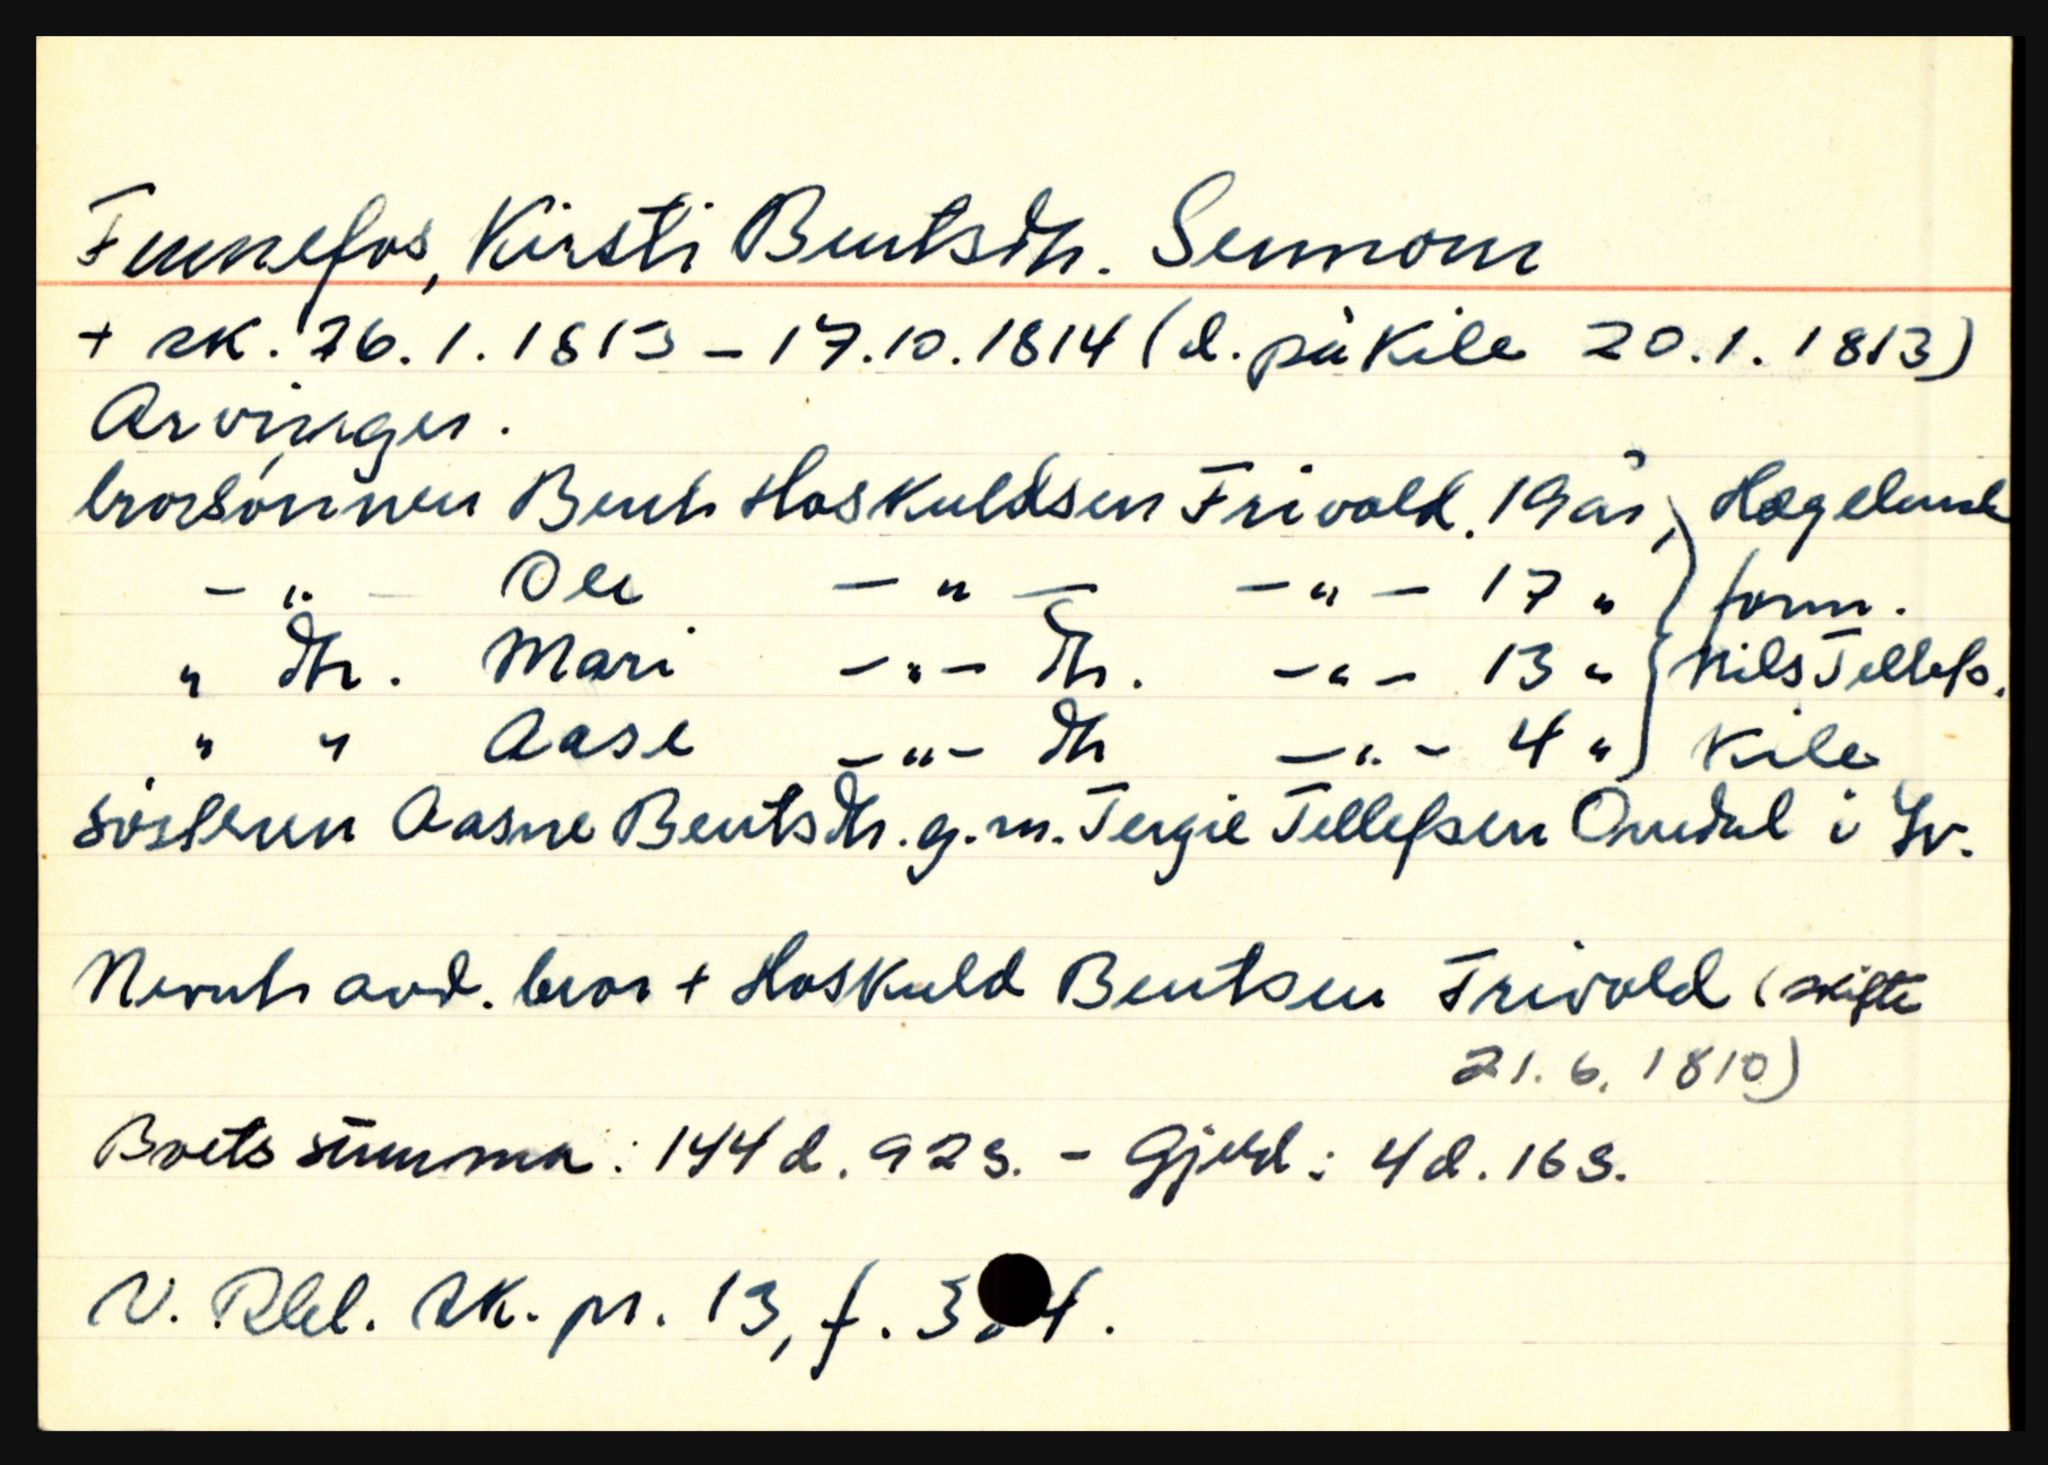 Funnefos, Kirsti Bentsdtr. Senmom
+ sk. 26.1.1813 – 17.10.1814 (d. på Kile 20.1.1813)
Arvinger.
brorsönnen Bent Hoskuldsen Frivold. 19 år, Hægeland
– " – Ole – " – – " – 17 " form.
" dtr. Mari – " – dtr. – " – 13 " Nils Tellefs.
" " Aase – " – dtr – " – 4 " Kile
sösteren Aasne Bentsdtr. g.m. Tergie Tellefsen Omdal i Yv.
Nevnt avd. bror + Hoskuld Bentsen Frivold (skifte
21.6.1810)
Boets summa: 144 d. 92 s. – Gjeld: 4 d. 16 s.
V. Rbl. sk. pr. 13, f.